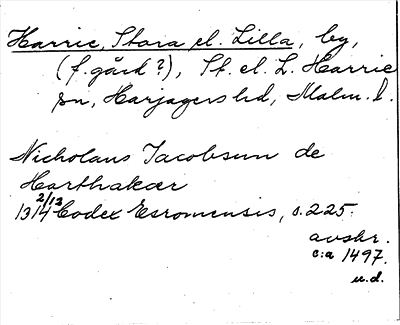 Harrie, Stora el. Lilla, by,
(f. gård?), St. el. L. Harrie
sn, Harjagers hd, Malm. l.
Nicholaus Jacobsun de
Harthakær
2/12
1314 Codex Esromensis, s. 225.
avskr.
c:a 1497.
u.d.